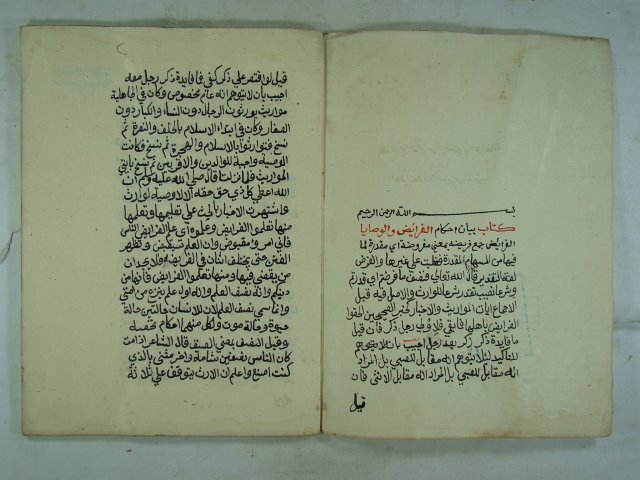 بسم الله الرحمن الرحيم
كتاب بيان احكام الفرائض والوصايا
الفرائض جمع فريضة بمعنى مفروضة اي مقدرة لما
فيها من السهام المقدرة فغلبت على غيرها والفرض
لغة التقدير قال الله تعالى فنصف ما فرضتم اي قدرتم
وشرعا نصيب مقدر شرعا للوارث والاصل فيه قبل
الاجماع ايات المواريث والاخبار كخبر الصحيحين الحقوا
الفرائض باهلها فما بقي فلاولى رجل ذكر فان قيل
ما فايدة ذكر ذكر بعد رجل اجيب بان
للتاكيد ليلا يتوهم انه مقابل للصبي بل المراد
انه مقابل للصبي بل المراد انه مقابل الانثى فان
قيل
قيل لو اقتصر على ذكر كفى فما فايدة ذكر رجل معه
اجيب بان لا يتوهم انه عام مخصوص وكان في الجاهلية
مواريث يورثون الرجال دون النساء والكبار دون
الصغار وكان في ابتداء الاسلام بالحلف والنصرة ثم
نسخ فتوارثوا بالاسلام والهجرة ثم نسخ فكانت
الوصية واجبة للوالدين والاقربين ثم نسخ بايتي
المواريث فلما نزلتا قال صلى الله عليه وسلم ان
الله اعطى كل ذي حق حقه الا لا وصية لوارث
واشتهرت الاخبار بالحث على تعليمها وتعلمها
منها تعلموا الفرايض وعلموه اي علم الفرايض الناس
فاني امرؤ مقبوض وان العلم سيقبض وتظهر
الفتن حتى يختلف اثنان في الفريضة فلا يجدان
من يقضي فيها ومنها تعلموا الفرايض فانها من
دينكم وانه نصف العلم وانه اول علم ينزع من امتي
وانما سمي نصف العلم لان للانسان حالتين حالة
حيوة وحالة موت ولكل منهما احكام تخصه
وقيل النصف بمعنى الصنف قال الشاعر اذا مت
كان الناس نصفين شامت واخر مثني بالذي
كنت اصنع واعلم ان الارث يتوقف على ثلاثة